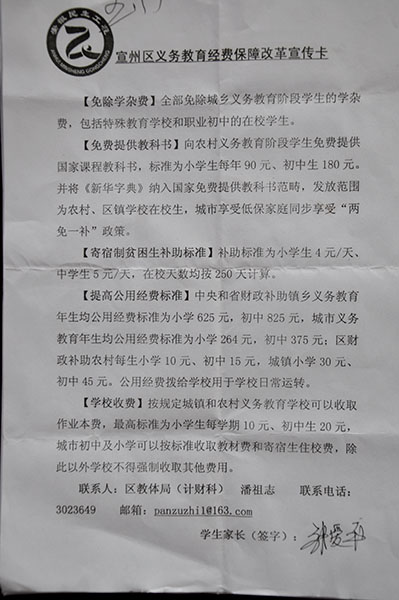 宣州区义务教育经费保障改革宣传卡
【免除学杂费】全部免除城乡义务教育阶段学生的学杂
费，包括特殊教育学校和职业初中的在校学生。
【免费提供教科书】向农村义务教育阶段学生免费提供
国家课程教科书，标准为小学生每年 90 元、初中生 180 元。
并将《新华字典》纳入国家免费提供教科书范畴，发放范围
为农村、区镇学校在校生，城市享受低保家庭同步享受“两
免一补”政策。
【寄宿制贫困生补助标准】补助标准为小学生 4 元/天、
中学生 5 元/天，在校天数均按 250 天计算。
【提高公用经费标准】中央和省财政补助镇乡义务教育
年生均公用经费标准为小学 625 元，初中 825 元，城市义务
教育年生均公用经费标准为小学 264 元，初中 375 元；区财
政补助农村每生小学 10 元、初中 15 元，城镇小学 30 元、
初中 45 元。公用经费拨给学校用于学校日常运转。
【学校收费】按规定城镇和农村义务教育学校可以收取
作业本费，最高标准为小学生每学期 10 元、初中生 20 元，
城市初中及小学可以按标准收取教材费和寄宿生住校费，除
此以外学校不得强制收取其他费用。
联系人：区教体局（计财科） 潘祖志 联系电话：
3023649 邮箱：panzuzhi1@163.com
学生家长（签字）：